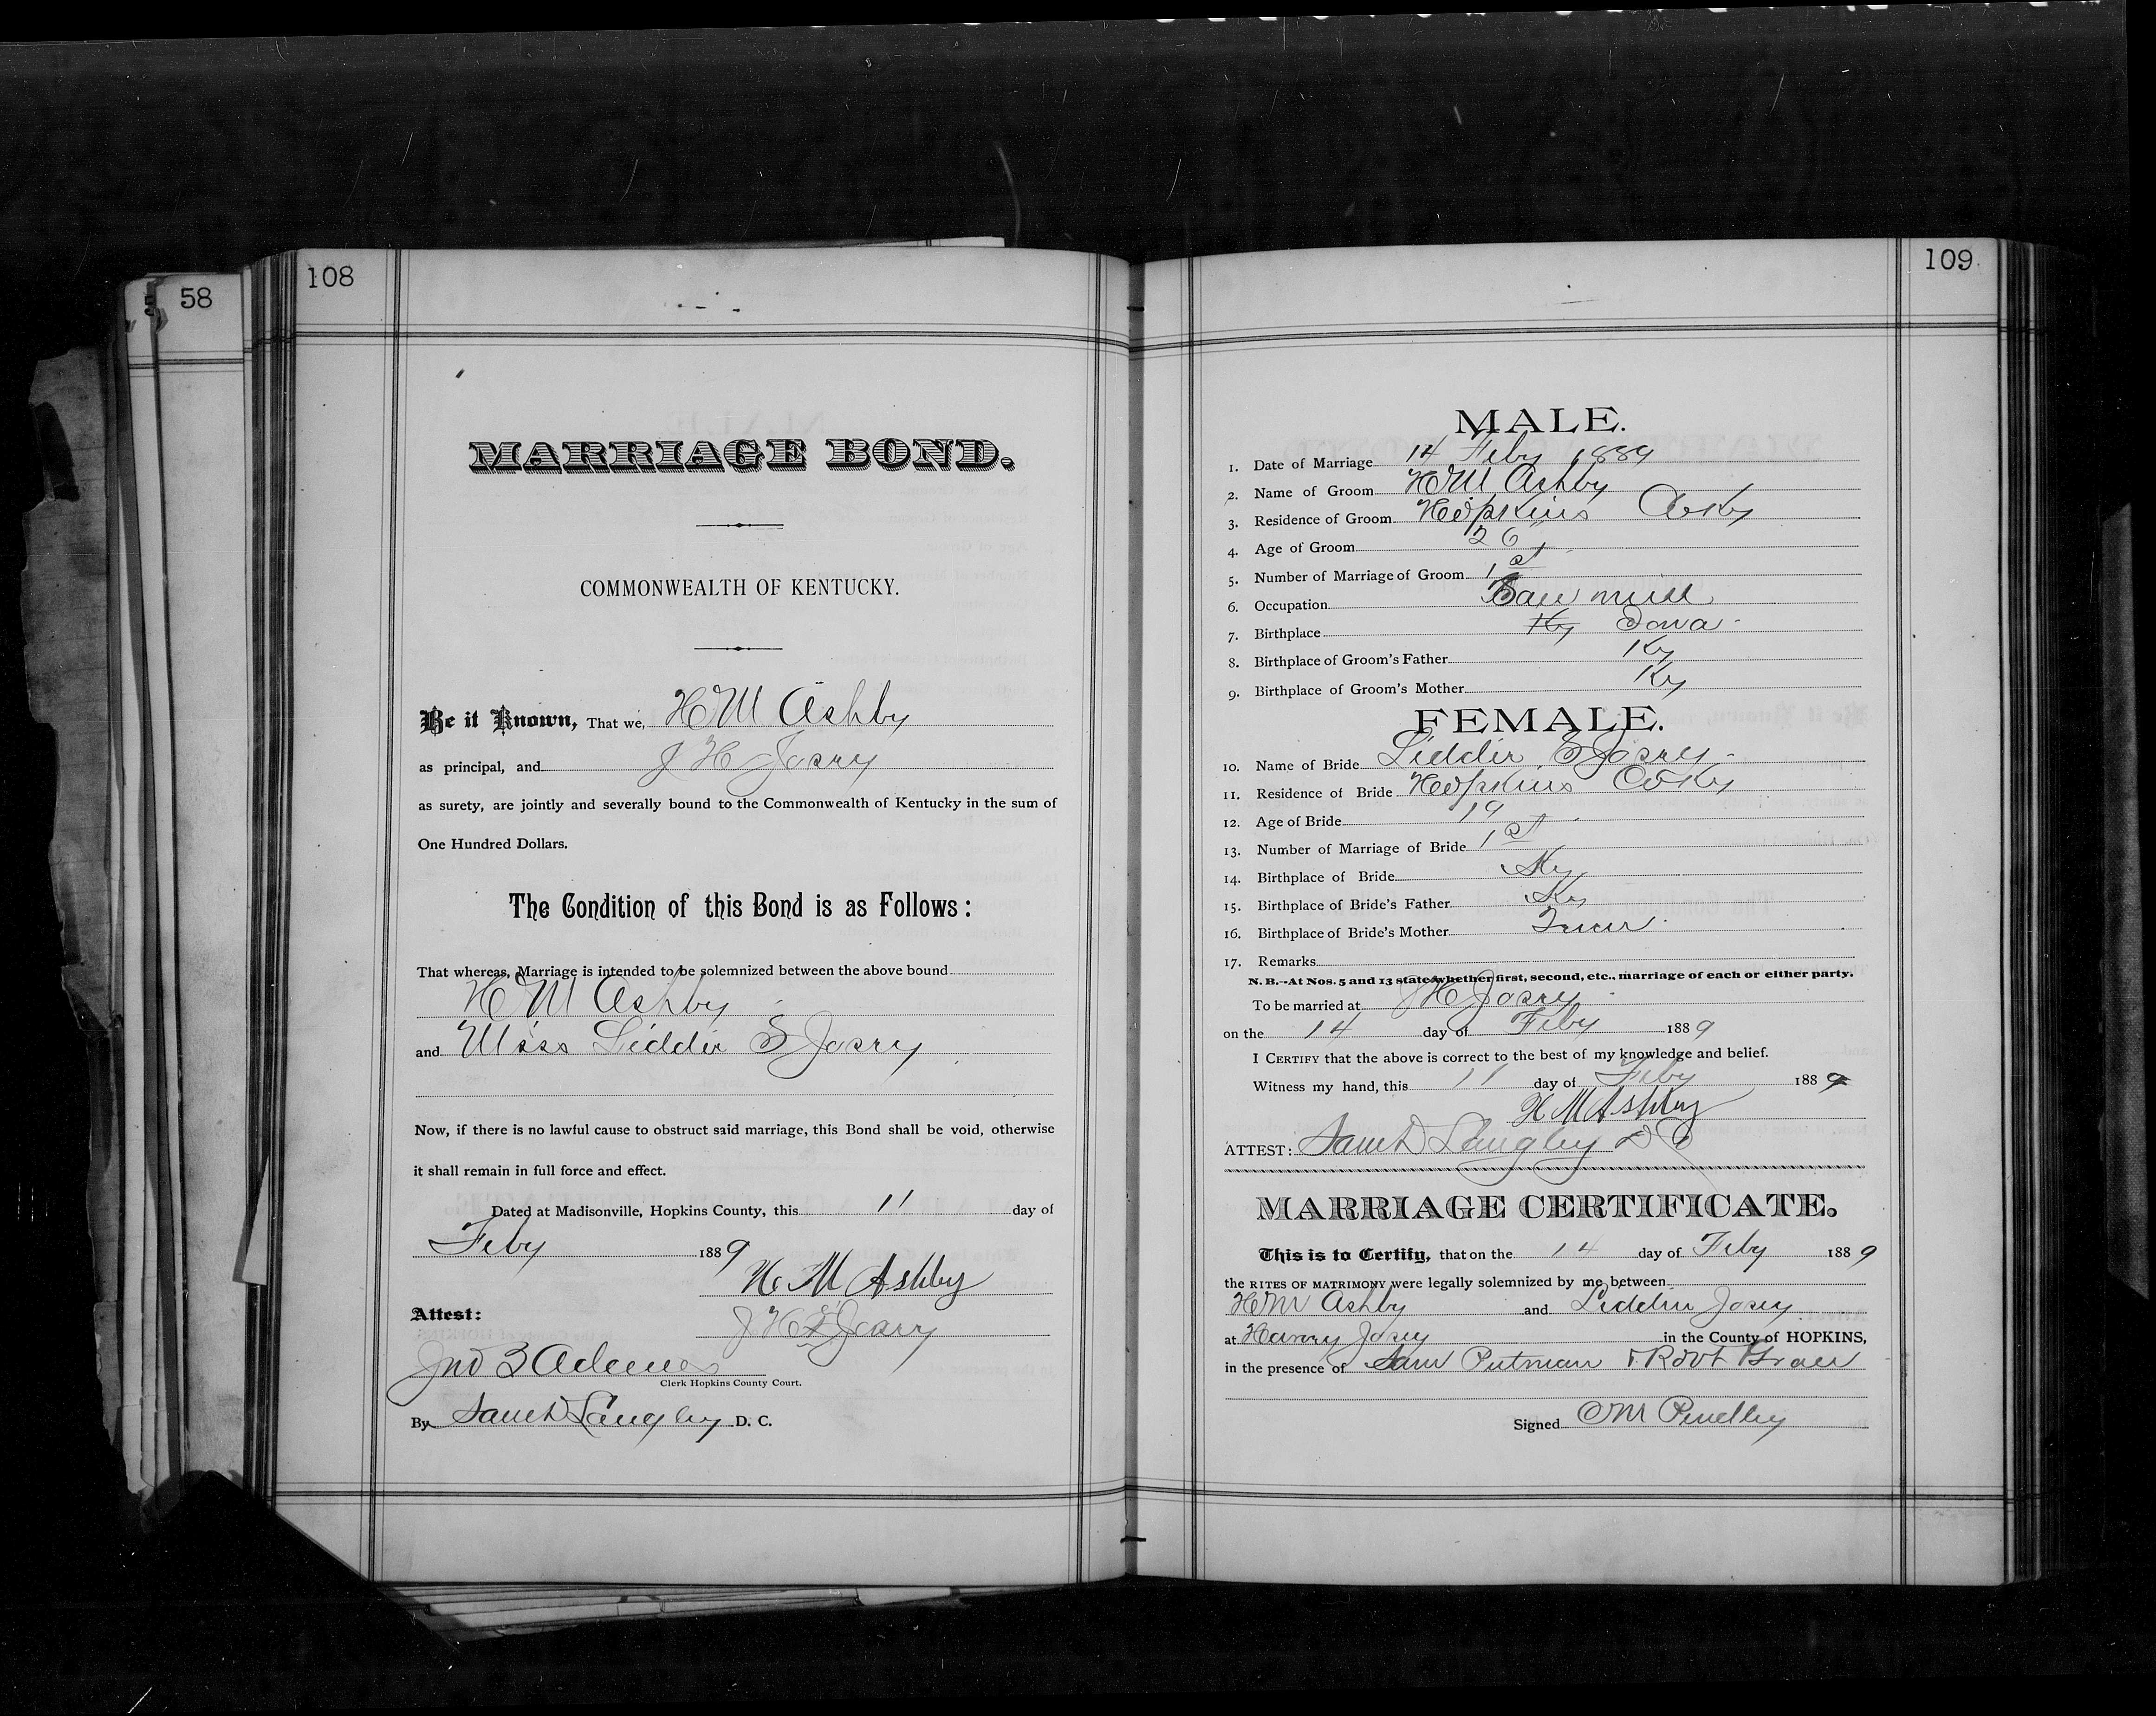 58
108
MARRIAGE BOND.
COMMONWEALTH OF KENTUCKY.
Be it Known, That we, H M Ashby
as principal, and J H Josey
as surety, are jointly and severally bound to the Commonwealth of Kentucky in the sum of
One Hundred Dollars.
The Condition of this Bond is as Follows:
That whereas, Marriage is intended to be solemnized between the above bound
H M Ashby
and Miss Liddie E Josey
Now, if there is no lawful cause to obstruct said marriage, this Bond shall be void, otherwise
it shall remain in full force and effect.
Dated at Madisonville, Hopkins County, this 11 day of
Feby 1889
H M Ashby
Attest:
J H Josey
Jno
Clerk Hopkins County Court.
By Langley D. C.
109
MALE.
1. Date of Marriage 14 Feby 1889
2. Name of Groom H M Ashby
3. Residence of Groom Hopkins Co Ky
4. Age of Groom 26
5. Number of Marriage of Groom 1st
6. Occupation Saw mill
7. Birthplace Ky Iowa
8. Birthplace of Groom's Father Ky
9. Birthplace of Groom's Mother Ky
FEMALE.
10. Name of Bride Liddie E Josey
11. Residence of Bride Hopkins Co Ky
12. Age of Bride 19
13. Number of Marriage of Bride 1st
14. Birthplace of Bride Ky
15. Birthplace of Bride's Father Ky
16. Birthplace of Bride's Mother
17. Remarks
N. B.—At Nos. 5 and 13 state whether first, second, etc., marriage of each or either party.
To be married at J H Josey
on the 14 day of Feby 1889
I CERTIFY that the above is correct to the best of my knowledge and belief.
Witness my hand, this 11 day of Feby 1889
H M Ashby
ATTEST: Langley D C
MARRIAGE CERTIFICATE.
This is to Certify, that on the 14 day of Feby 1889
the RITES OF MATRIMONY were legally solemnized by me between
H M Ashby and Liddie Josey
at Harvey Josey in the County of HOPKINS,
in the presence of Sam Putman & Robt
Signed